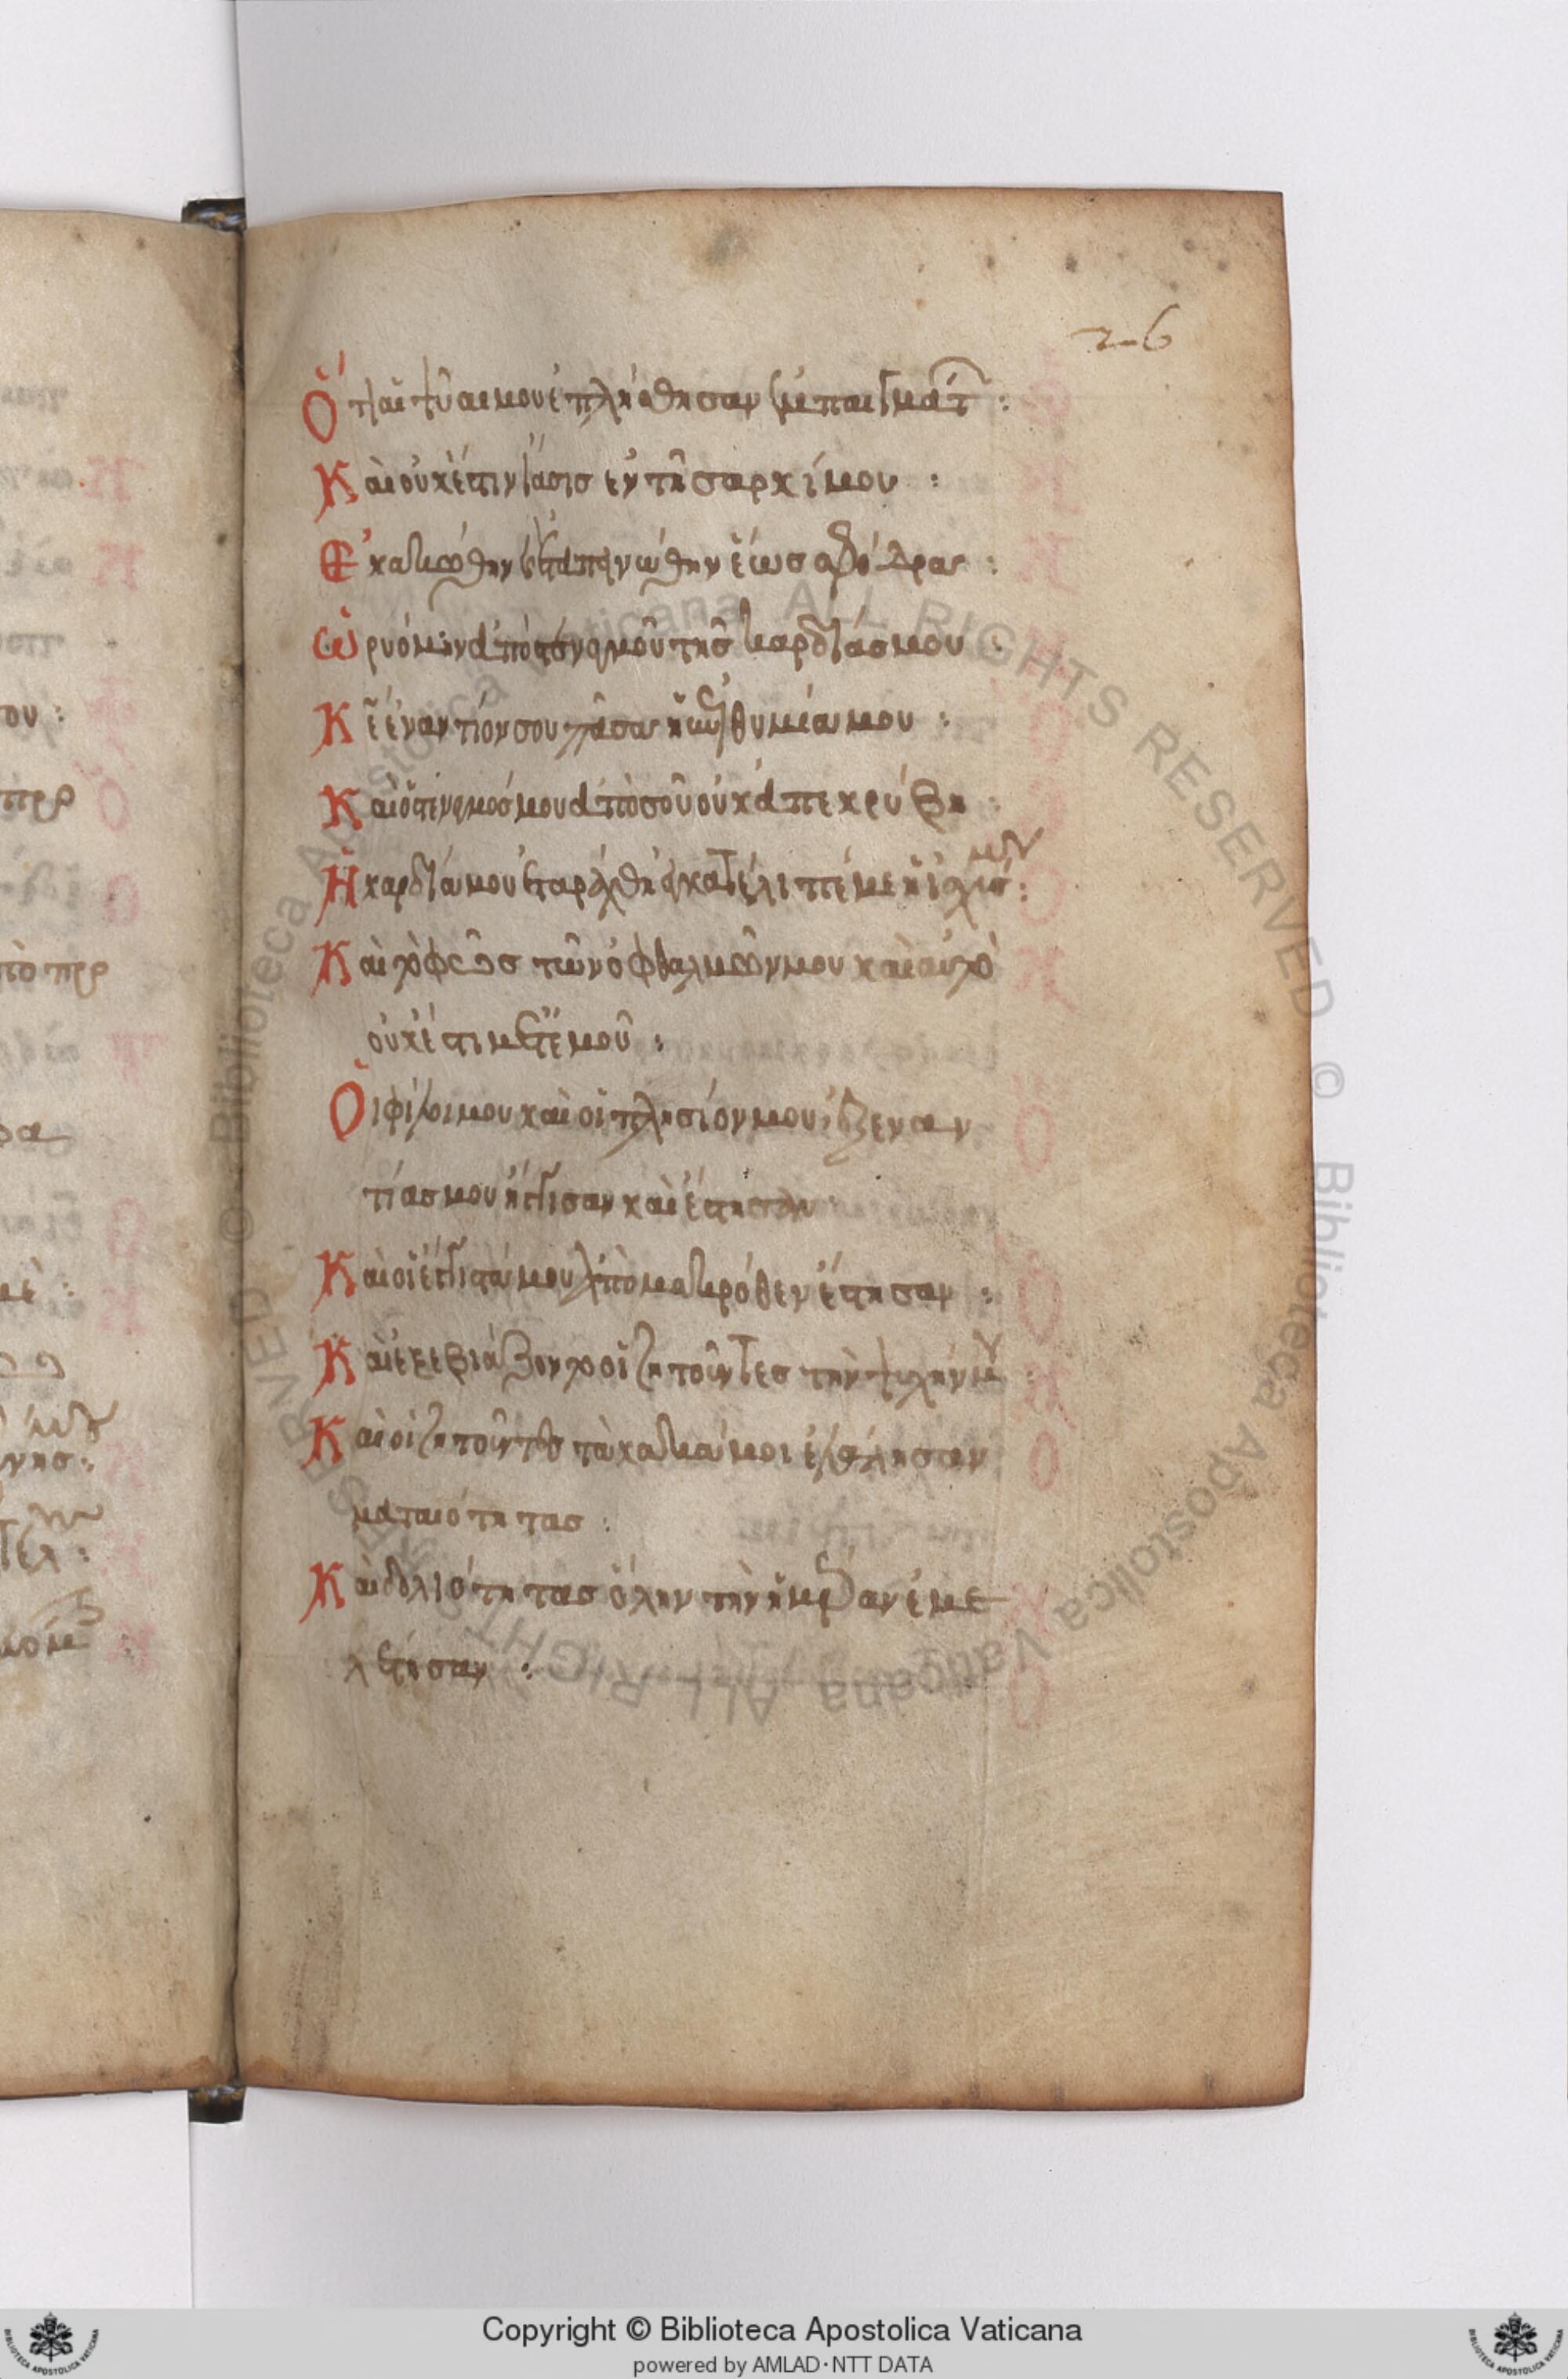 26
Ὅτι αἱ ψύαι μου ἐπλήσθησαν ἐμπαιγμάτ :
Καὶ οὐκ ἔστιν ἴασις ἐν τῆ σαρκί μου :
Ἐκακώθην καὶ ἐταπεινώθην ἕως σφόδρα :
Ὠρυόμην ἀπὸ στεναγμοῦ τῆς καρδίας μου :
Κε ἐναντίον σου πᾶσα ἡ ἐπιθυμία μου :
Καὶ ὁ στεναγμός μου ἀπὸ σοῦ οὐκ ἀπεκρύβη :
Ἡ καρδία μου ἐταράχθη ἐγκατέλιπέ με ἡ ἰσχύς μου :
Καὶ τὸ φῶς τῶν ὀφθαλμῶν μου καὶ αὐτὸ
οὐκ ἔστι μετ' ἐμοῦ :
Οἱ φίλοι μου καὶ οἱ πλησίον μου ἐξ εναν
τίας μου ἤγγισαν καὶ ἔστησαν
Καὶ οἱ ἔγγιστά μου ἀπὸ μακρόθεν ἔστησαν :
Καὶ ἐξεβιάζοντο οἱ ζητοῦντες τὴν ψυχήν μου :
Καὶ οἱ ζητοῦντες τὰ κακά μοι ἐλάλησαν
ματαιότητας :
Καὶ δολιότητας ὅλην τὴν ἡμέραν ἐμε
λέτησαν :
Copyright © Biblioteca Apostolica Vaticana
powered by AMLAD·NTT DATA